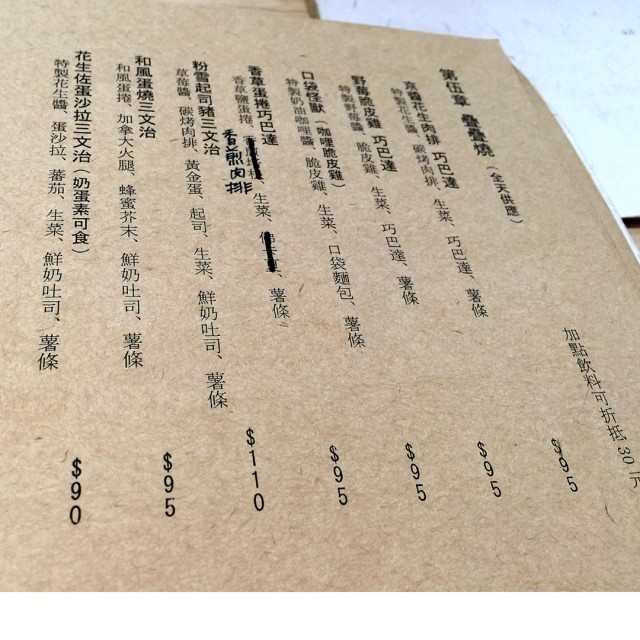 加點飲料可折抵30元
第伍章 疊疊燒(全天供應)
花生肉排 巧巴達
特製花生醬、碳烤肉排、生菜、巧巴達、薯條
$95
野莓脆皮雞 巧巴達
特製野莓醬、脆皮雞、生菜、巧巴達、薯條
$95
口袋怪獸(咖哩脆皮雞)
特製奶油咖哩醬、脆皮雞、生菜、口袋麵包、薯條
$95
香草蛋捲巧巴達
香草鹽蛋捲、香煎肉排、生菜、、薯條
$95
粉雪起司豬三文治
草莓醬、碳烤肉排、黃金蛋、起司、生菜、鮮奶吐司、薯條
$110
和風蛋燒三文治
和風蛋捲、加拿大火腿、蜂蜜芥末、生菜、鮮奶吐司、薯條
$95
花生佐蛋沙拉三文治(奶蛋素可食)
特製花生醬、蛋沙拉、蕃茄、生菜、鮮奶吐司、薯條
$90